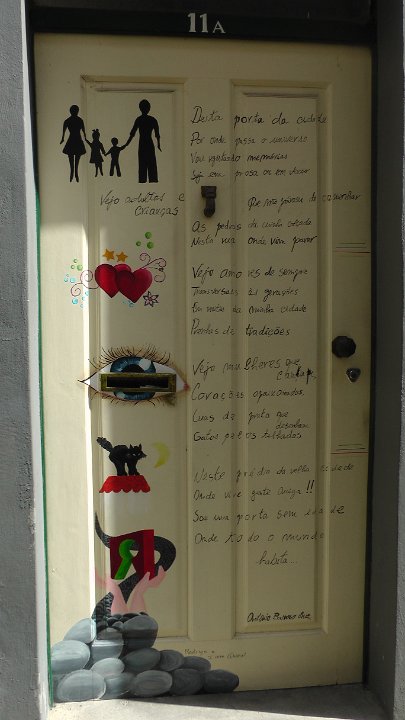 11A
Desta porta da cidade
Por onde passa o universo
Vou registando memórias
Seja em prosa ou em verso
Vejo adultos e
Crianças
Que não param de caminhar
As pedras da minha cidade
Nesta rua onde vim parar
Vejo amores de sempre
Transversais às gerações
Em noites da minha cidade
de tradições
Vejo mulheres que
Corações apaixonados
Luas de prata que
Gatos pretos
Neste prédio da velha cidade
Onde vive gente amiga!!
Sou uma porta sem idade
Onde todo o mundo
habita...